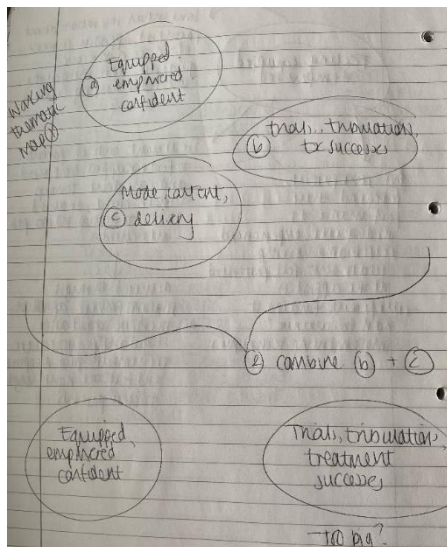 Working
thematic
map
Equipped
ⓐ
confident
trials, tribulations,
ⓑ tx successes
Mode, content,
ⓒ delivery
combine ⓑ + ⓒ
Equipped,
confident
Trials, tribulations,
treatment
successes
too big?